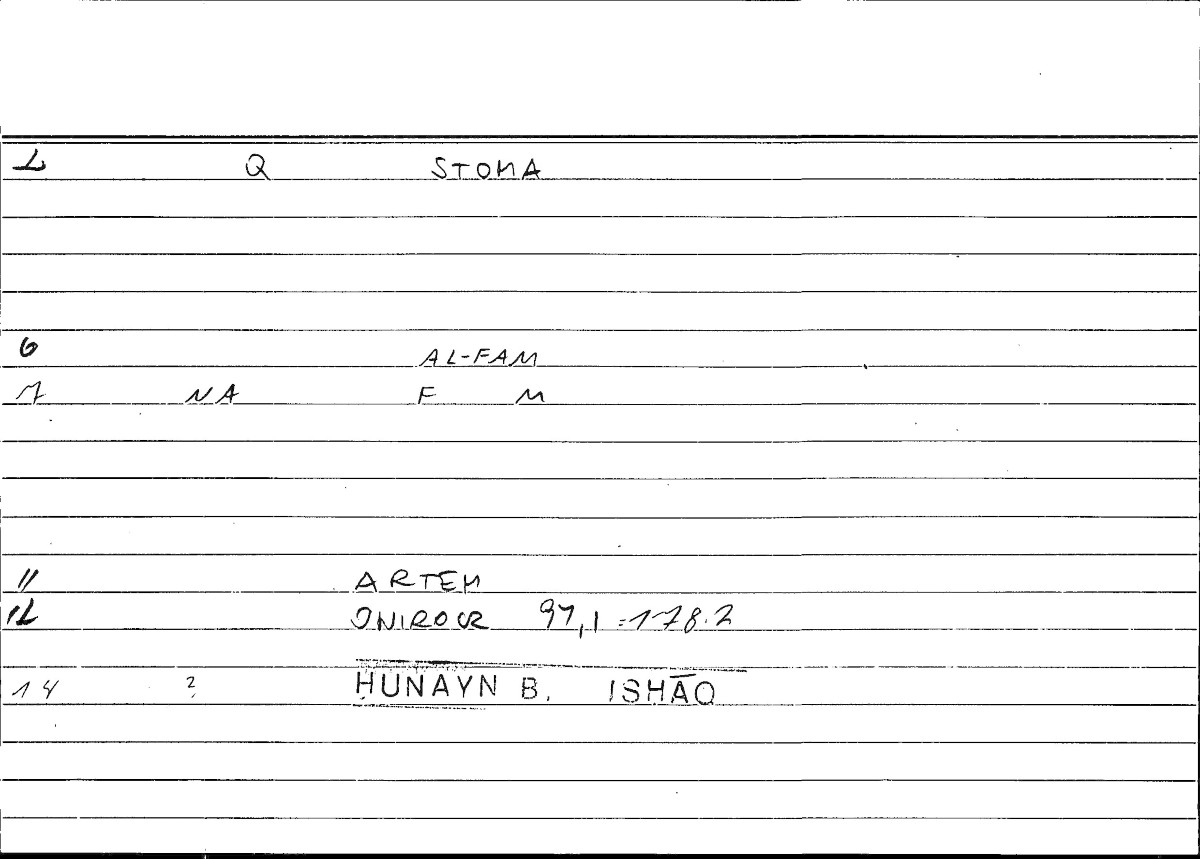 1 Q STOMA
6 AL-FAM
7 NA F M
11 ARTEM
12 ONIROCR 97,1 = 178.2
14 ? ḤUNAYN B. ISḤĀQ